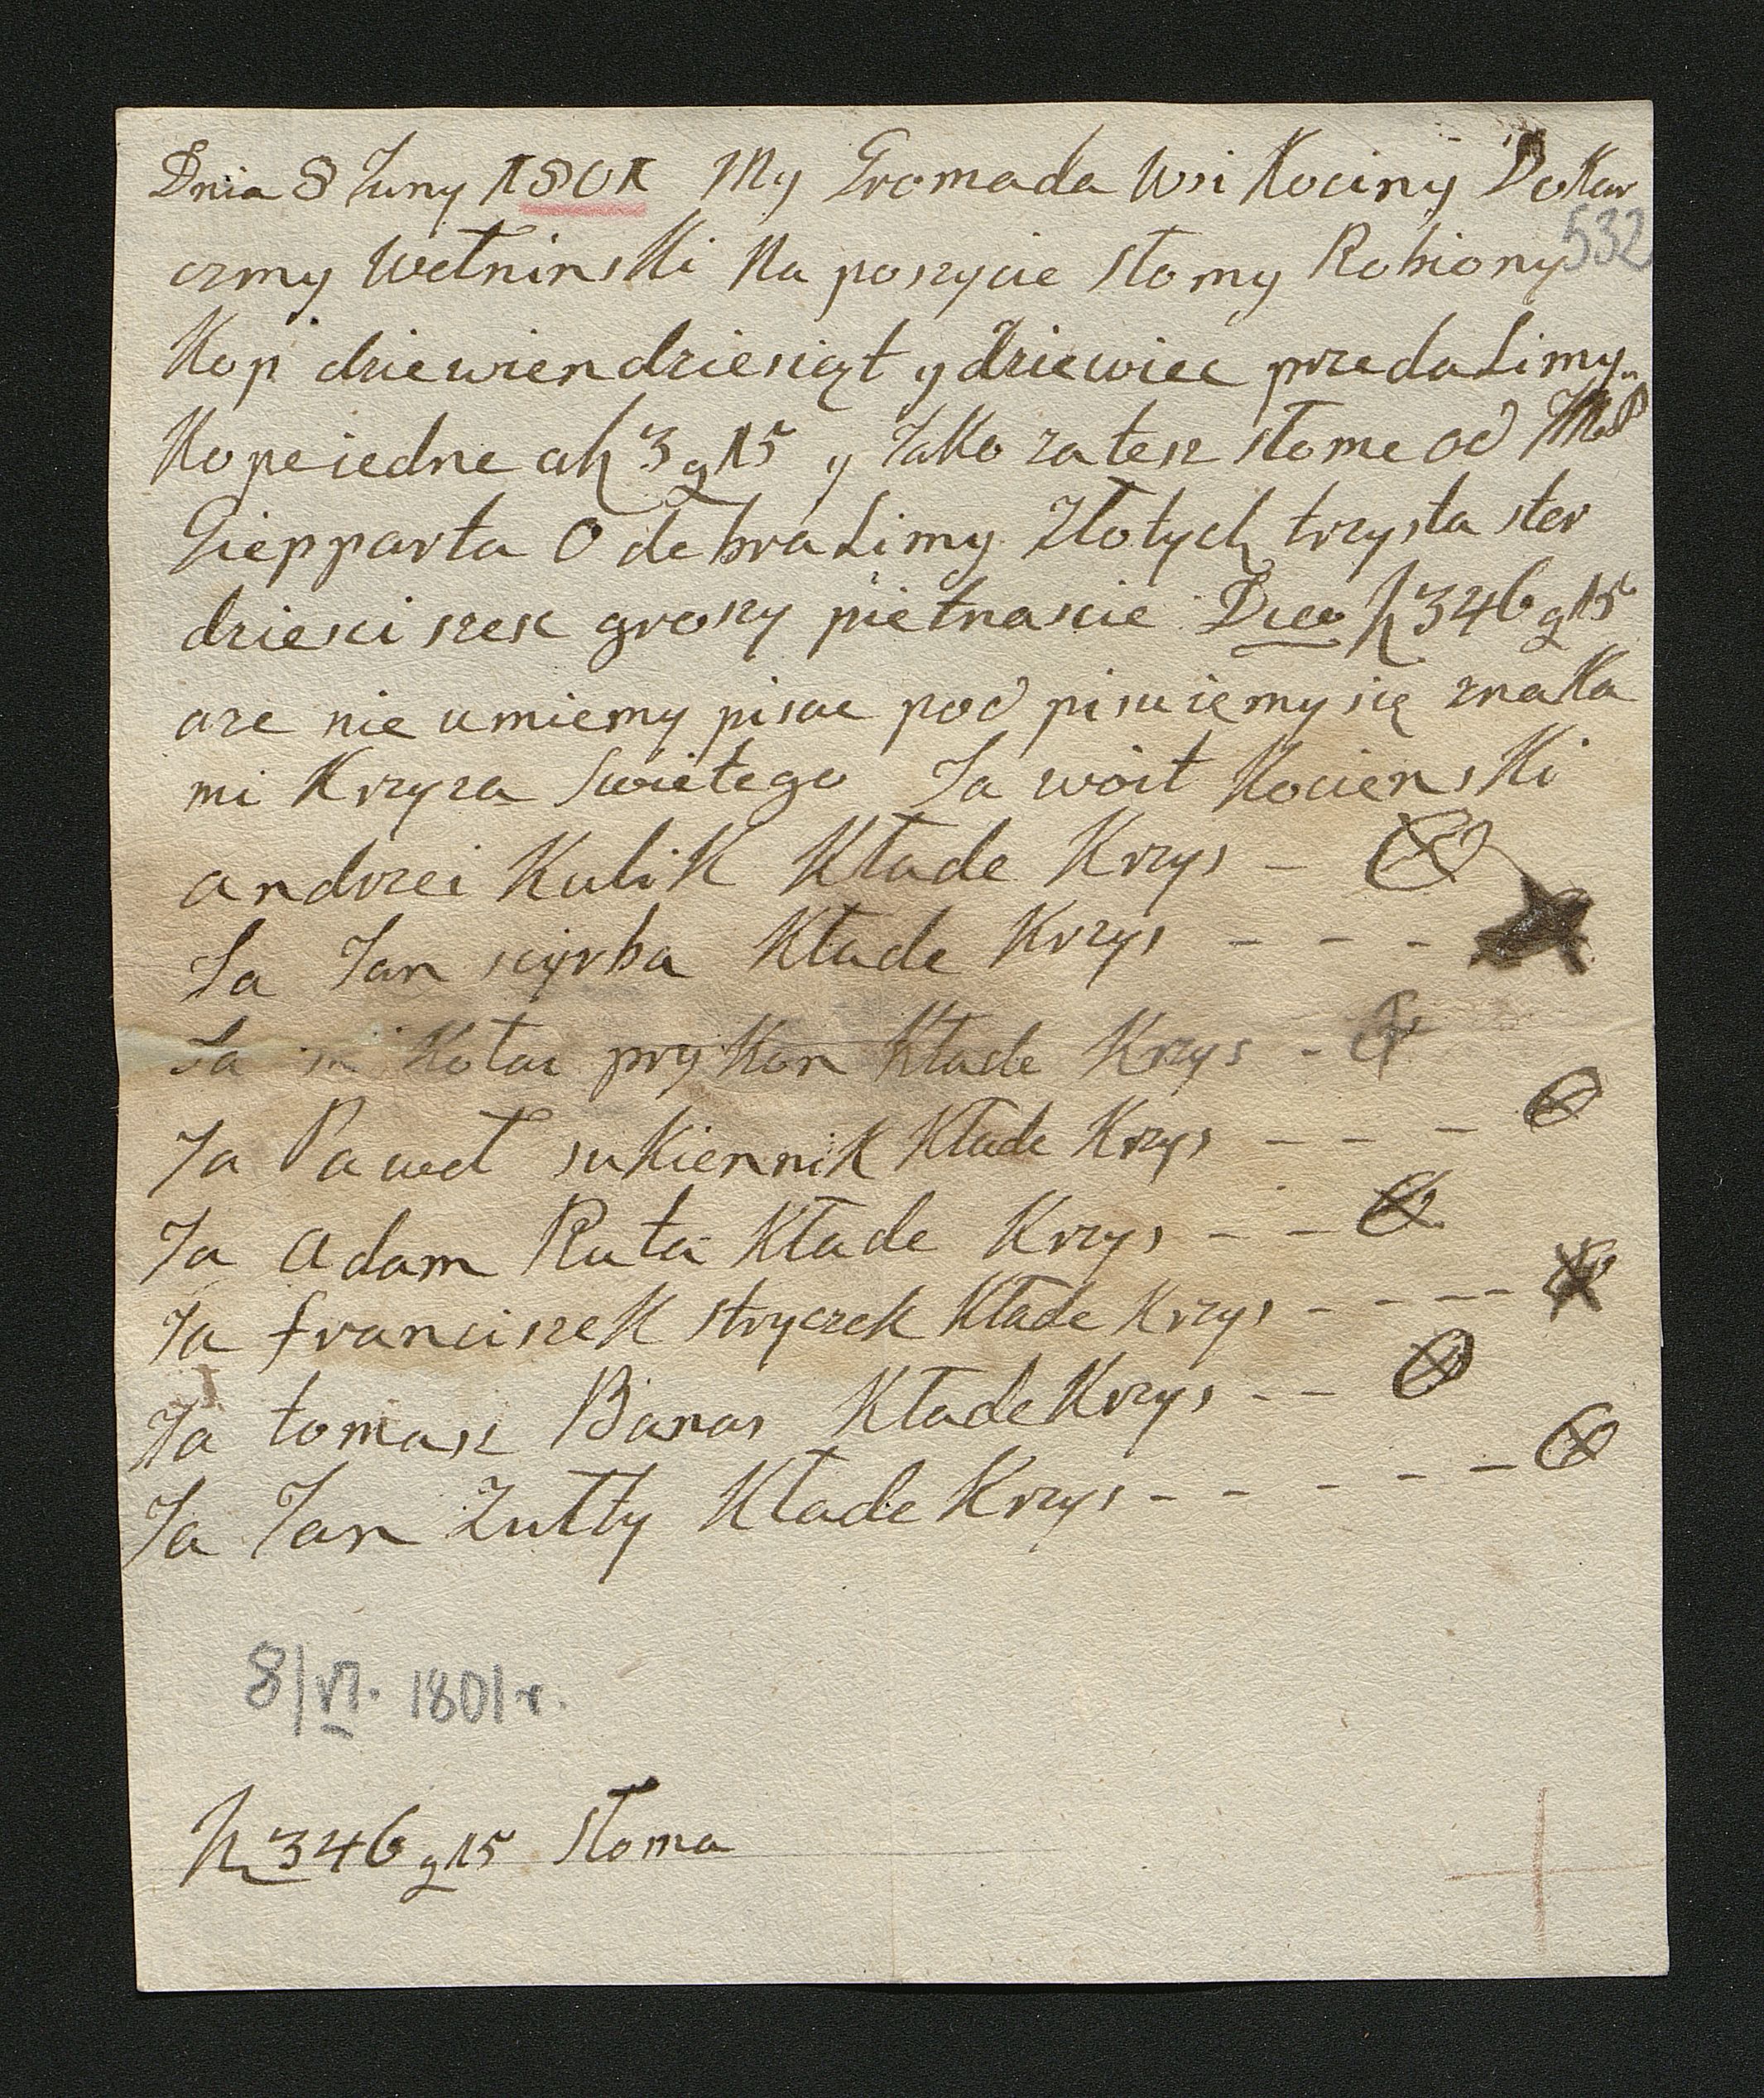 Dnia 8 Juny 1801 My Gromada wsi Kociny Do Kar
532
czmy wełninski Na poszycie słomy Robiony
Kop dziewiendziesiąt y dziewiec przedaLimy
Kope iedne a zł 3 g 15 y Jako za tesz słome od
Giepparta OdebraLimy Złotych trzysta ster
dziesci szesc groszy pietnascie Dico zł 346 g 15
aze nie umiemy pisac pod pisuięmy się znaka
mi Krzyza Swietego Ja wóit Kocienski
andrzei Kulik Kłade Krzys -
Ja Jan scyrba Kłade Krzys - - -
Ja mikołai prykon Kłade Krzys -
Ja Paweł sukiennik Kłade Krzys - - -
Ja adam Ruta Kłade Krzys - -
Ja franciszek stryczek Kłade Krzys - - - -
Ja tomasz Banas Kłade Krzys - -
Ja Jan Zułty Kłade Krzys - - - - -
8/VI. 1801 r.
zł 346 g 15 słoma